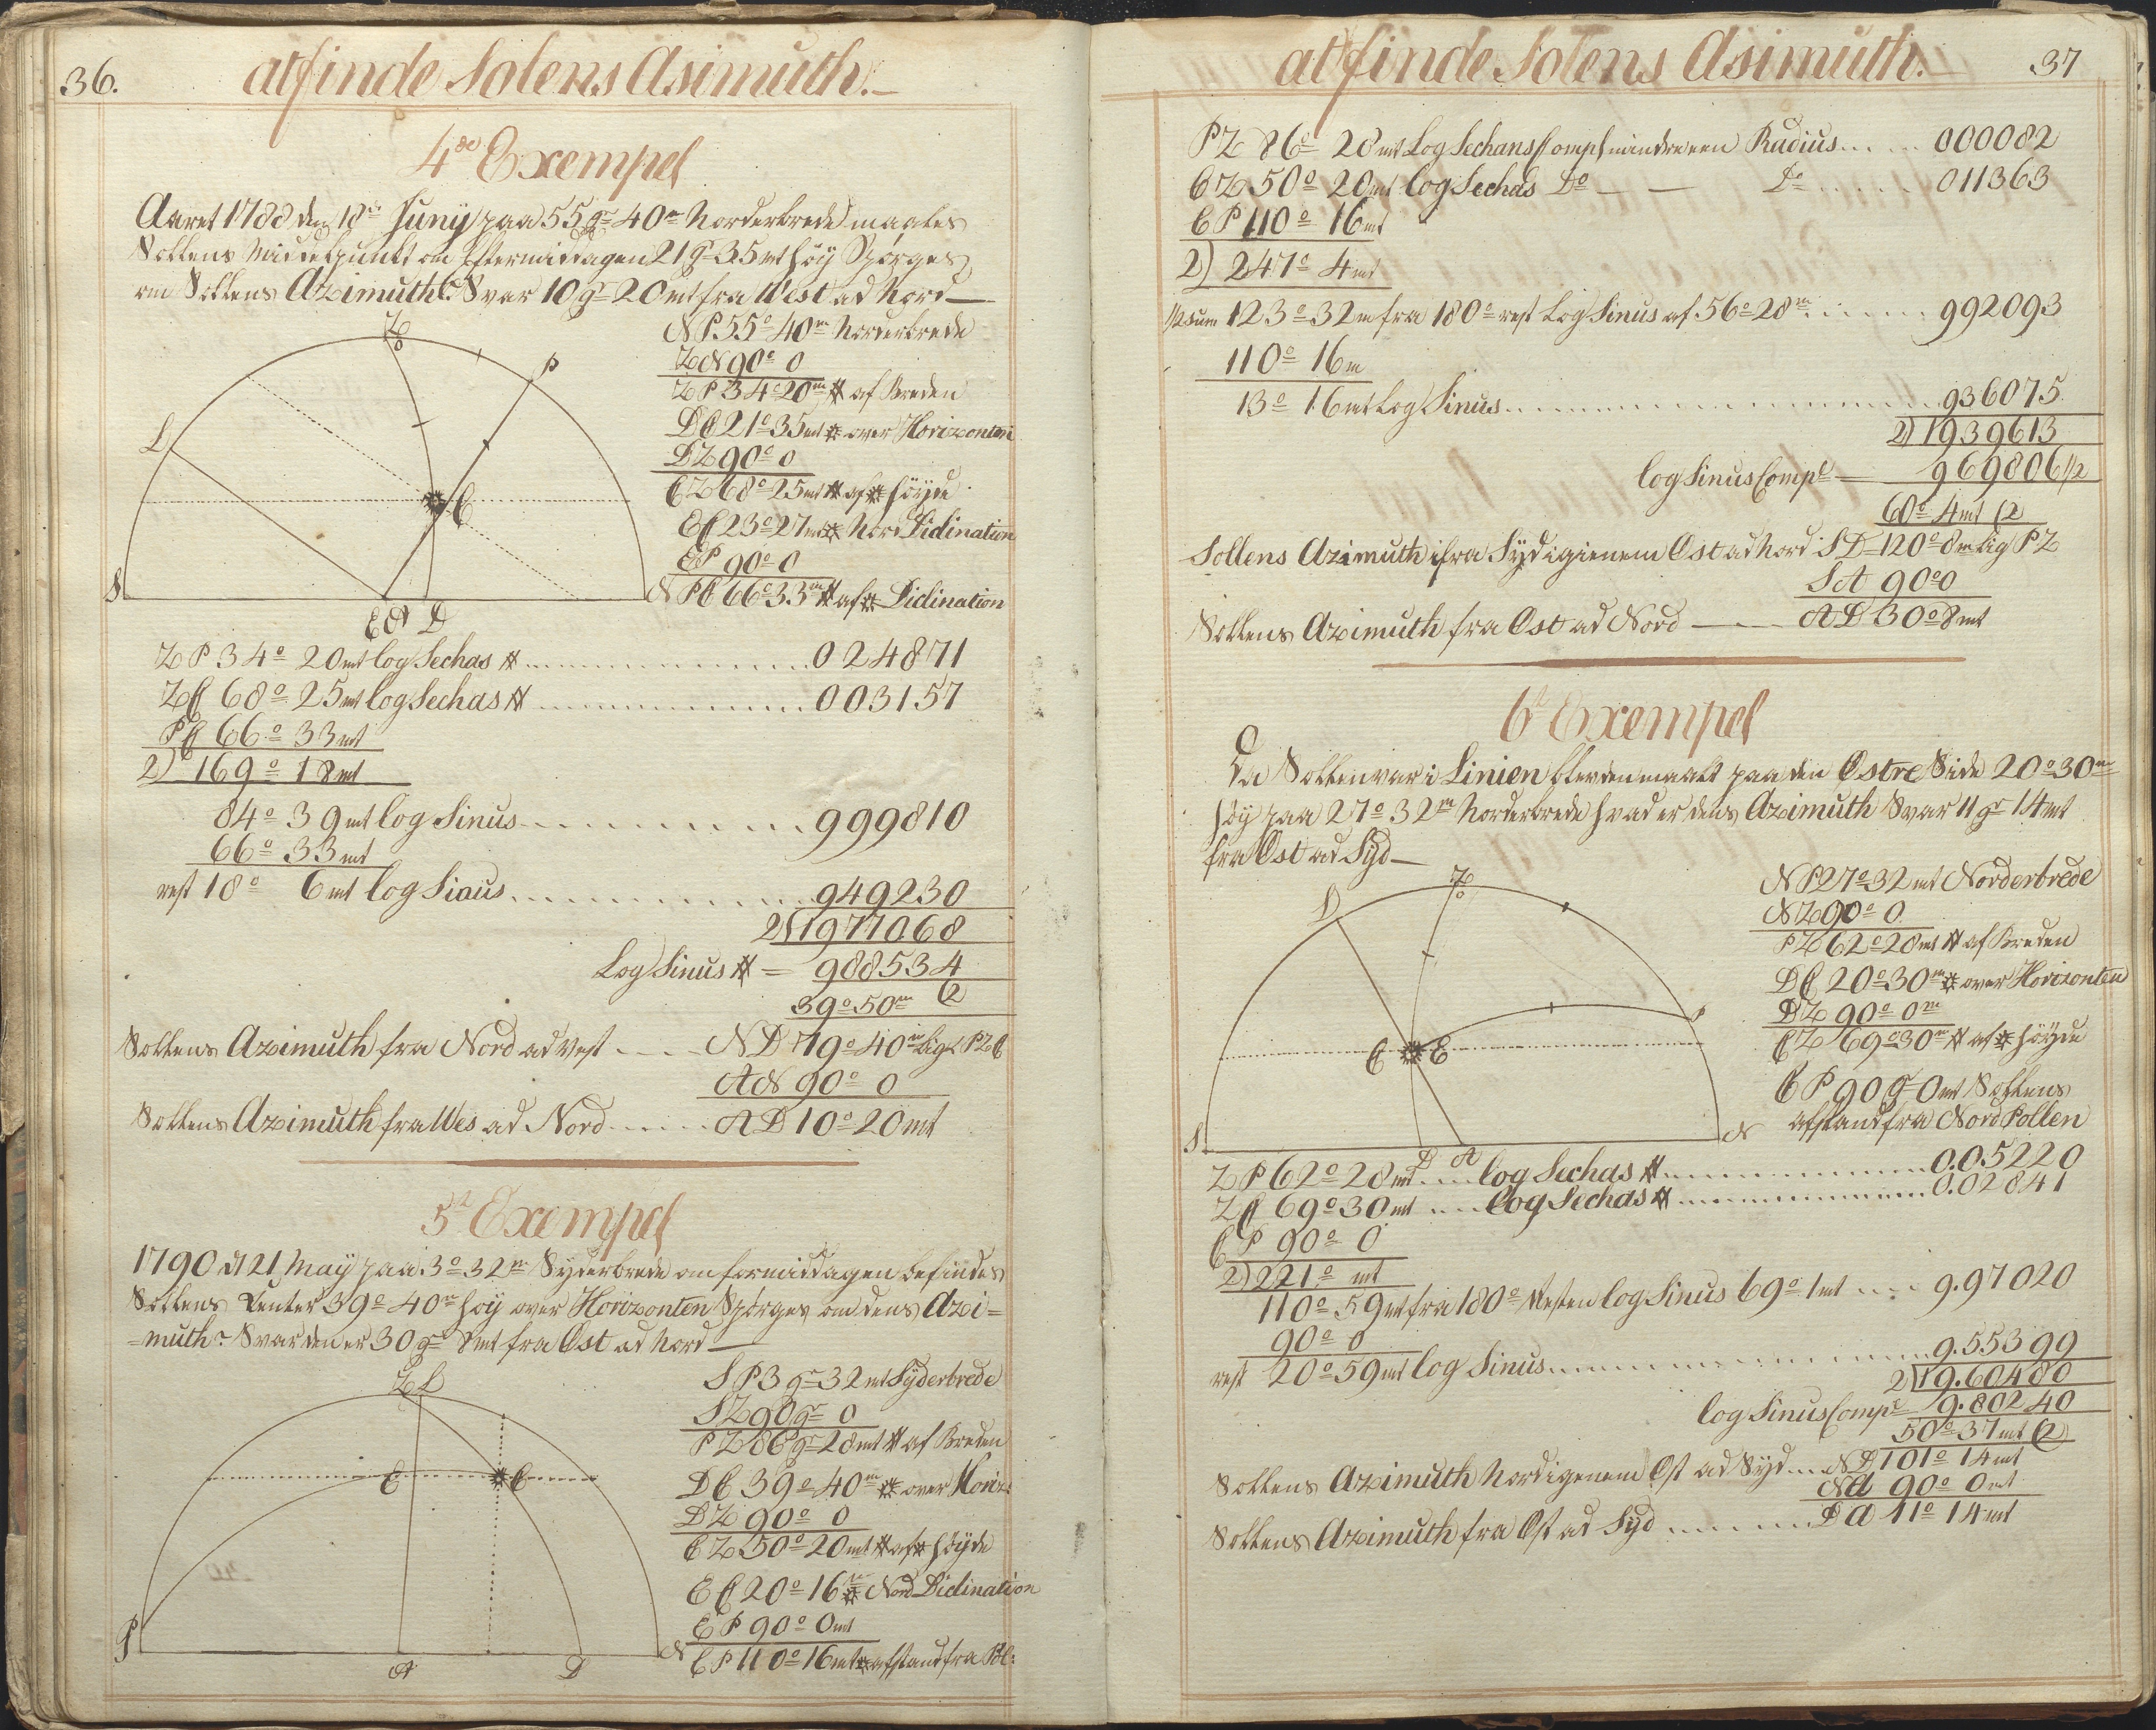 36.
at finde Solens Asimuth.
4de Exempel
Aaret 1788 den 18de Juny paa 55 gr 40m Norderbrede maales
Sollens Middelpunkt om Eftermiddagen 21 gr 35 mt höy Spörges
om Sollens Azimuth? Svar 10 gr 20 mt fra West ad Nord
NP 55° 40m Norderbrede
ZN 90° 0
ZP 34° 20m af Breden
D 21° 35 mt over Horizonten
DZ 90° 0
Z 68° 25 mt af höyde
E 23° 27 m Nord Diclination
EP 90° 0
P 66° 33m af Diclination
Z
P
S
N
D
ZP 34° 20 mt log Sechas 024871
Z 68° 25 mt log Sechas 003157
P 66° 33 mt
2) 169° 18 mt
84° 39 mt log Sinus 999810
66° 33 mt
rest 18° 6 mt log Sinus 949230
2) 1977068
Log Sinus = 988534
39° 50m (2
Sollens Azimuth fra Nord ad West ND 79° 40m Lig
AN 90° 0
Sollens Azimuth fra Wes ad Nord AD 10° 20 mt
5te Exempel
1790 d 21 May paa 3° 32m Syderbrede om formiddagen befindes
Sollens Center 39° 40m höy over Horizonten Spörges om dens Azi=
=muth? Svar den er 30 gr 8 mt fra Ost ad Nord
SP 3 gr 32 mt Syderbrede
SZ 90 gr 0
PZ 86 gr 28 mt af Breden
D 39° 40m over Horiz:
DZ 90° 0
Z 50° 20 mt af höyde
E 20° 16m Nord Diclination
EP 90° 0 mt
P 110° 16 mt afstand fra Pol:
P
N
A
D
37
at finde Solens Asimuth.
PZ 86° 28 mt Log Sechans Compl mindre een Radius 000082
Z 50° 20 mt log Sechas Do Do 011363
P 110° 16 mt
2) 247° 4 mt
1/2 sum 123° 32 m fra 180° rest Log Sinus af 56° 28m 992093
110° 16 m
13° 16 mt Log Sinus 936075
2) 1939613
log Sinus Compl 969806 1/2
60° 4 mt (2
Sollens Azimuth ifra Syd igienem Ost ad Nord SD 120° 8m Lig PZ
SA 90° 0
Sollens Azimuth fra Ost ad Nord AD 30° 8 mt
6te Exempel
Da Sollen var i Linien blev den maalt paa den Ostre Side 20° 30m
höy paa 27° 32m Norderbrede hvad er dens Azimuth Svar 11 gr 14 mt
fra Ost ad Syd
NP 27° 32 mt Norderbrede
NZ 90° 0
PZ 62° 28 mt af Breden
D 20° 30m over Horizonten
DZ 90° 0m
Z 69° 30m af höyde
P 90 gr 0 mt Sollens
afstand fra Nord Pollen
Z
P
S
N
D A
ZP 62° 28 mt log Sechas 0.05220
Z 69° 30 mt log Sechas 0.02841
P 90° 0
2) 221° mt
110° 59 mt fra 180° Resten log Sinus 69° 1 mt 9.97020
90° 0
rest 20° 59 mt log Sinus 9.55399
2) 19.60480
log Sinus Compl 9.80240
50° 37 mt (2)
Sollens Azimuth Nord igenem Ost ad Syd ND 101° 14 mt
NA 90° 0 mt
Sollens Azimuth fra Ost ad Syd DA 11° 14 mt